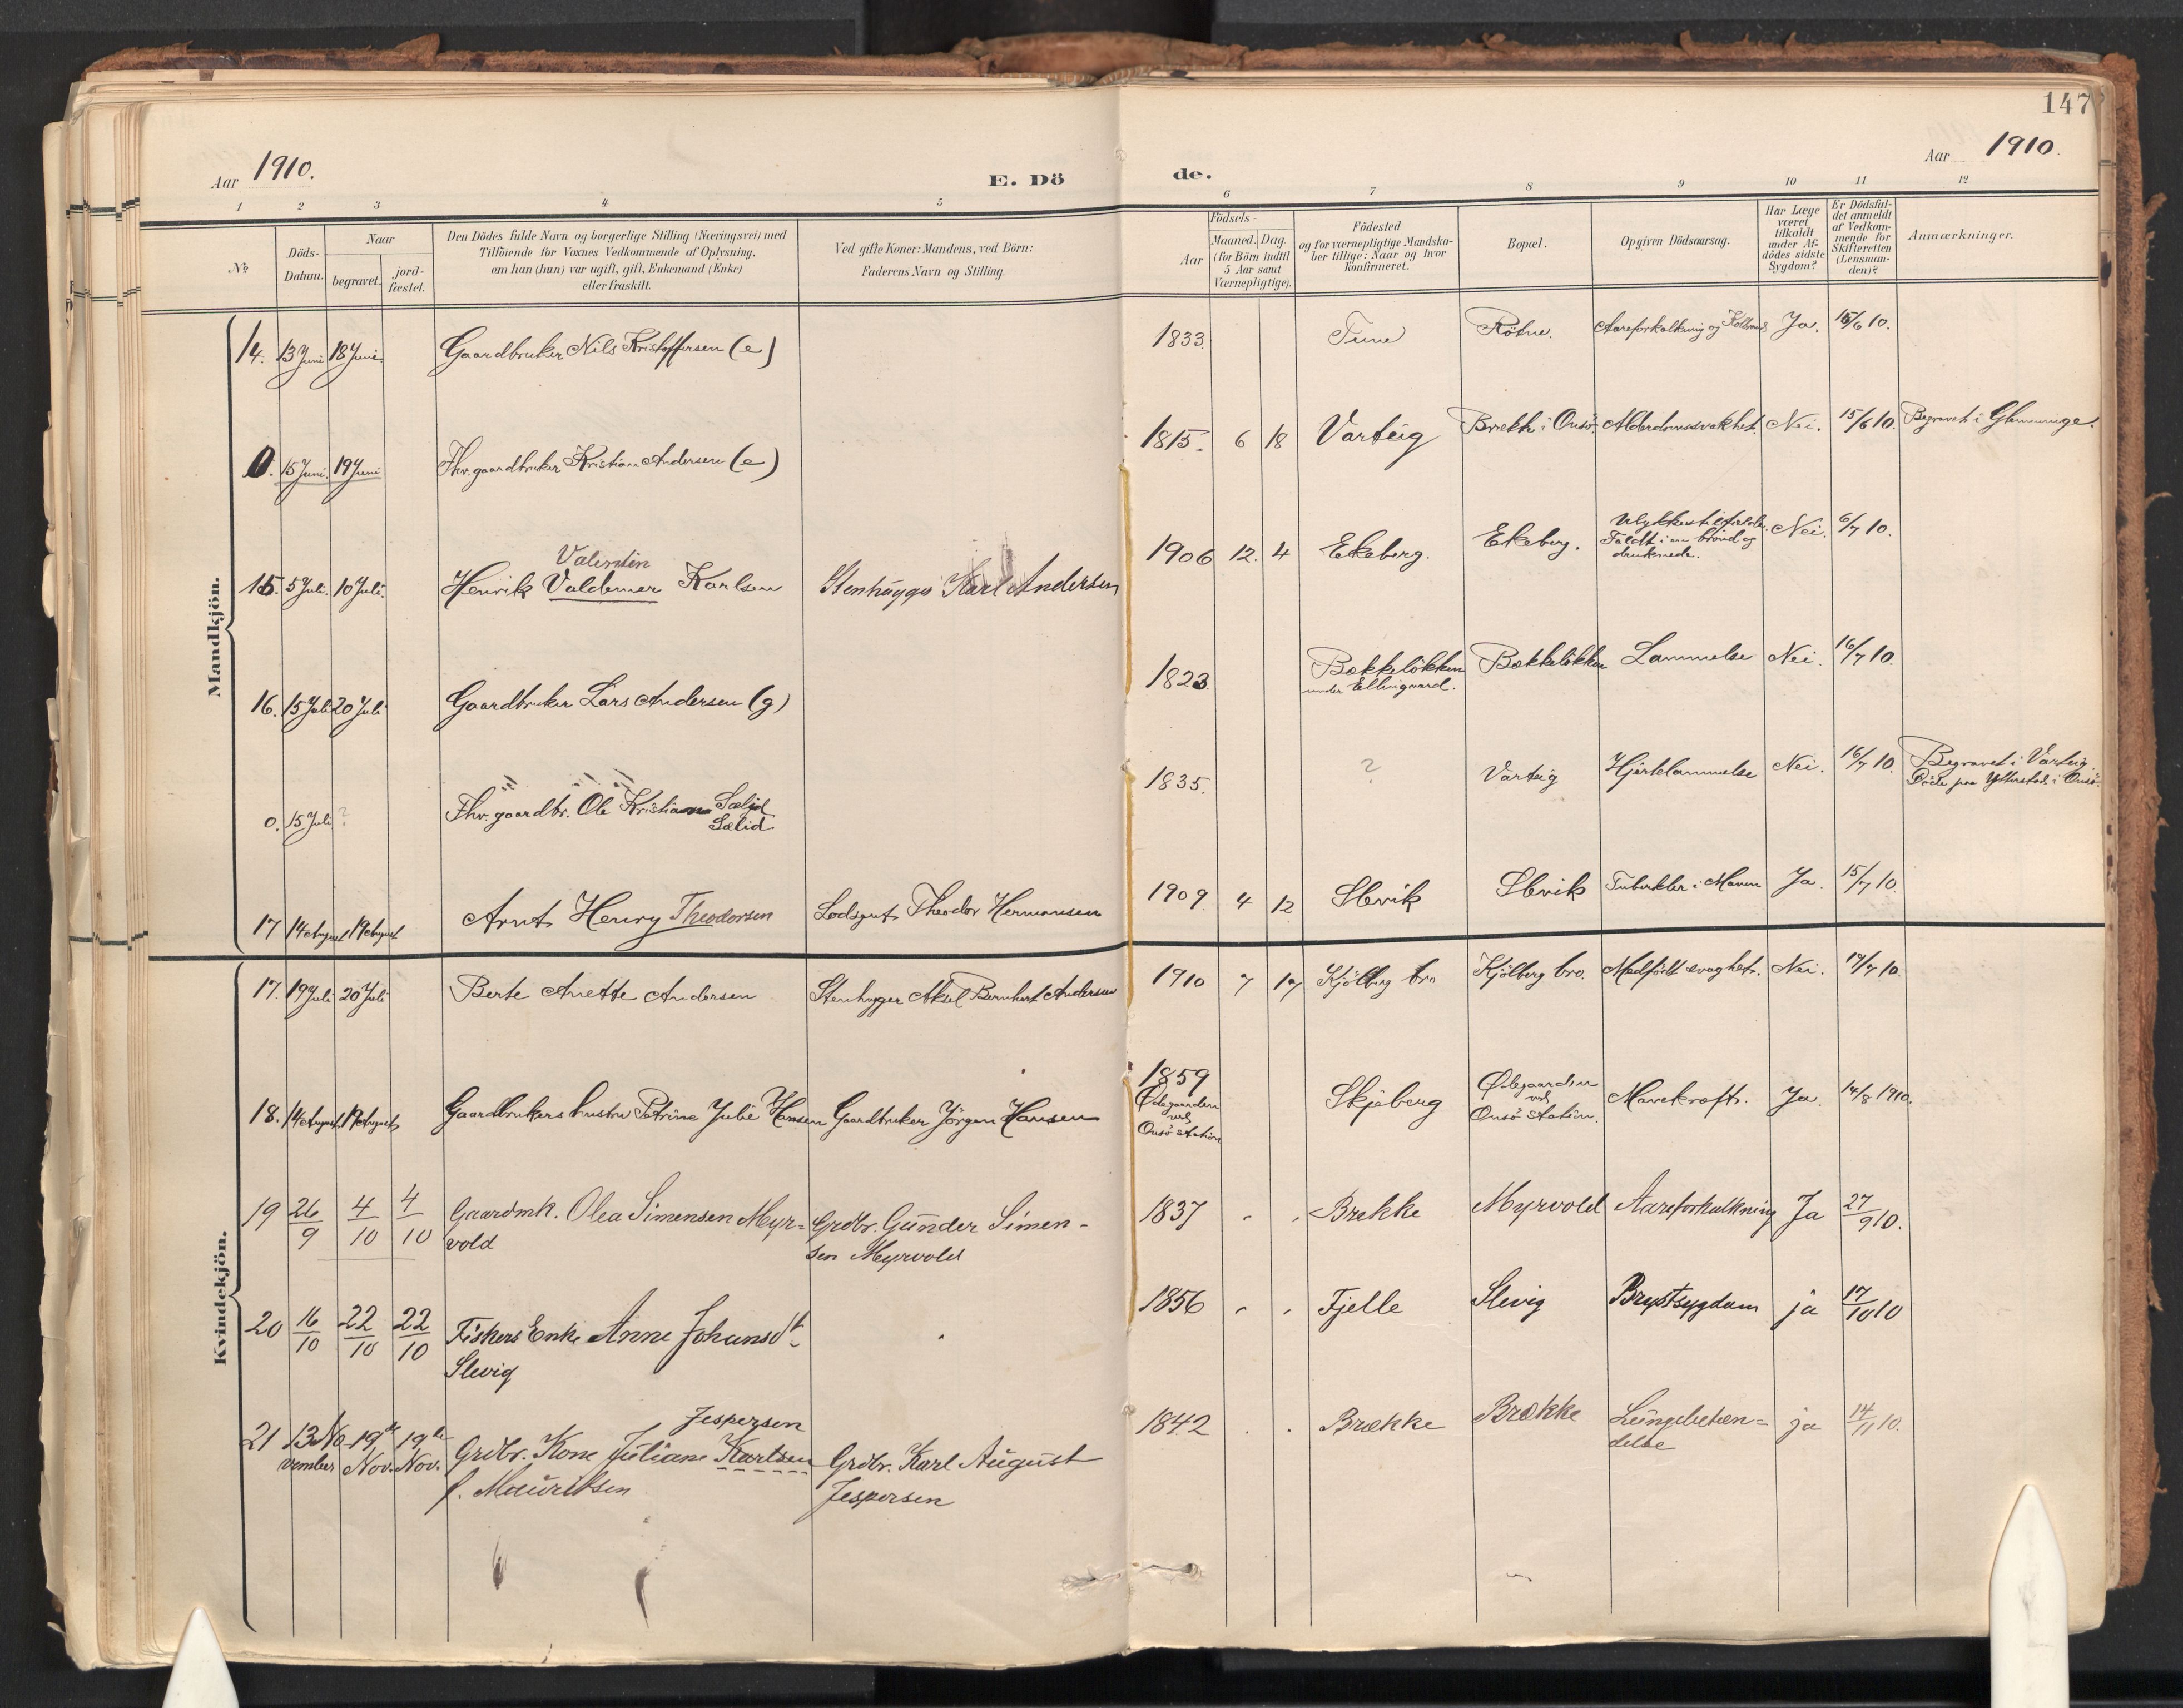 147
Aar 1910.
E. Dö
de.
Aar 1910.
1 2 3 4 5 6 7 8 9 10 11 12
No
Döds-
Datum.
Naar
begravet.
jord-
fæstet.
Den Dödes fulde Navn og borgerlige Stilling (Næringsvei) med
Tilföiende for Voxnes Vedkommende af Oplysning,
om han (hun) var ugift, gift, Enkemand (Enke)
eller fraskilt.
Ved gifte Koner: Mandens, ved Börn:
Faderens Navn og Stilling.
Födsels-
Aar
Maaned. Dag.
(for Börn indtil
5 Aar samt
Værnepligtige).
Födested
og for værnepligtige Mandska-
ber tillige: Naar og hvor
konfirmeret.
Bopæl.
Opgiven Dödsaarsag.
Har Læge
været
tilkaldt
under Af-
dödes sidste
Sygdom?
Er Dödsfal-
det anmeldt
af Vedkom-
mende for
Skifteretten
(Lensman-
den)?
Anmærkninger.
Mandkjön.
14. 13 Juni 18 Juni Gaardbruker Nils Kristoffersen (e) 1833. Tune Röhne. Aareforkalkning og Koldbrand Ja. 15/6 10.
0. 15 Juni. 19 Juni Fhv. gaardbruker Kristian Andersen (e) 1815. 6 18 Varteig Brekke i Onsö. Alderdomssvakhet. Nei. 15/6 10. Begravet i Glemminge.
Valentin
15. 5 Juli. 10 Juli. Henrik Valdemar Karlsen Stenhugger Karl Andersen 1906 12. 4 Ekeberg. Ekeberg. Ulykkestilfælde.
Faldt i en brönd og
druknede.
Nei. 6/7 10.
16. 15 Juli 20 Juli Gaardbruker Lars Andersen (g) 1823. Bækkelökken
under Elingaard.
Bækkelökken Lammelse Nei. 16/7 10.
0. 15 Juli ? Fhv. gaardbr. Ole Kristian Sælid
Sælid
1835. ? Varteig Hjertelammelse Nei. 16/7 10. Begravet i Varteig.
Döde paa Ytterstad i Onsö.
17 14 August 19 August Arnt Henry Theodorsen Losdgut Theodor Hermansen 1909 4 12 Slevik Slevik Tuberkler i Maven Ja. 15/7 10.
Kvindekjön.
17. 19 Juli 20 Juli Berte Anette Andersen Stenhugger Aksel Bernhart Andersen 1910 7 17 Kjölberg bro Kjölberg bro. Medfödt svaghet. Nei. 19/7 10.
18. 14 August 19 August Gaardbrukers hustru Petrine Julie Hansen Gaardbruker Jörgen Hansen 1859
Ödegaarden
ved
Onsö station
Skjeberg Ödegaarden
ved
Onsö station.
Mavekræft. Ja. 14/8 1910.
19 26/9 4/10 4/10 Gaardmk. Olea Simensen Myr-
vold
Grdbr. Gunder Simen-
sen Myrvold
1837 - - Brekke Myrvold Aareforkalkning Ja 27/9 10.
20 16/10 22/10 22/10 Fiskers Enke Anne Johansdt.
Slevig
1856 - - Fjelle Slevig Brystsygdom ja 17/10 10
Jespersen
21 13 No-
vember
19de
Nov.
19de
Nov.
Grdbr. Kone Juliane Karlsen
f. Mauritsen
Grdbr. Karl August
Jespersen
1842 . . Brække Brække Lungebetæn-
delse
ja 14/11 10.